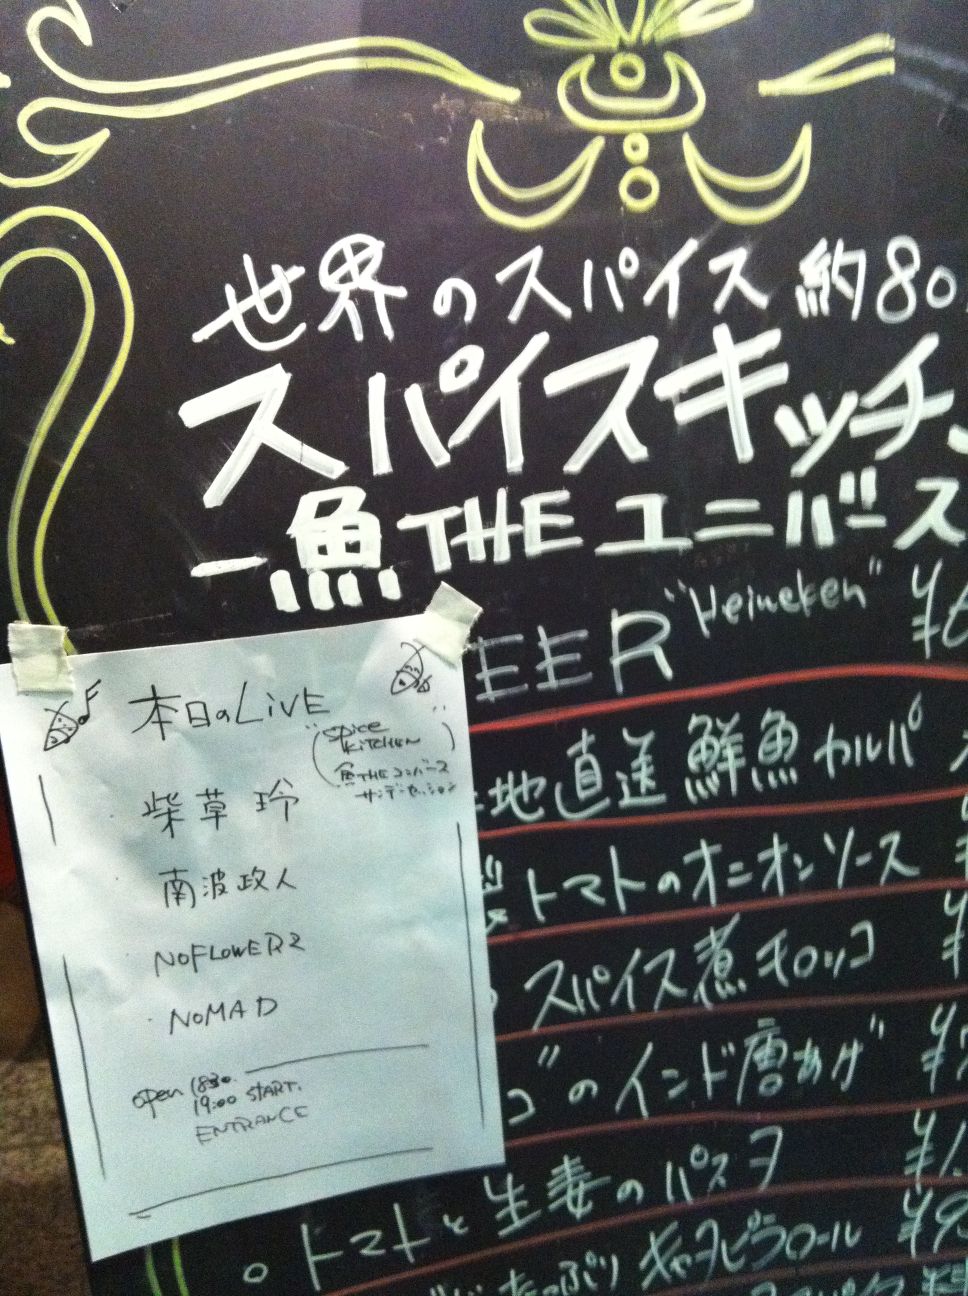 世界のスパイス 約80
スパイスキッチ
魚THEユニバース
EER "Heineken" ¥
地直送 鮮魚カルパ
トマトのオニオンソース
スパイス煮
"のインド唐あげ" ¥
トマトと生姜のパスタ ¥1
たっぷり キャラピラロール ¥9
本日のLiVE
"SPICE
KITCHEN"
魚THEユニバース
サンデーセッション
柴草 玲
南波政人
NOFLOWERZ
NOMAD
open 1830.
19:00 START.
ENTRANCE